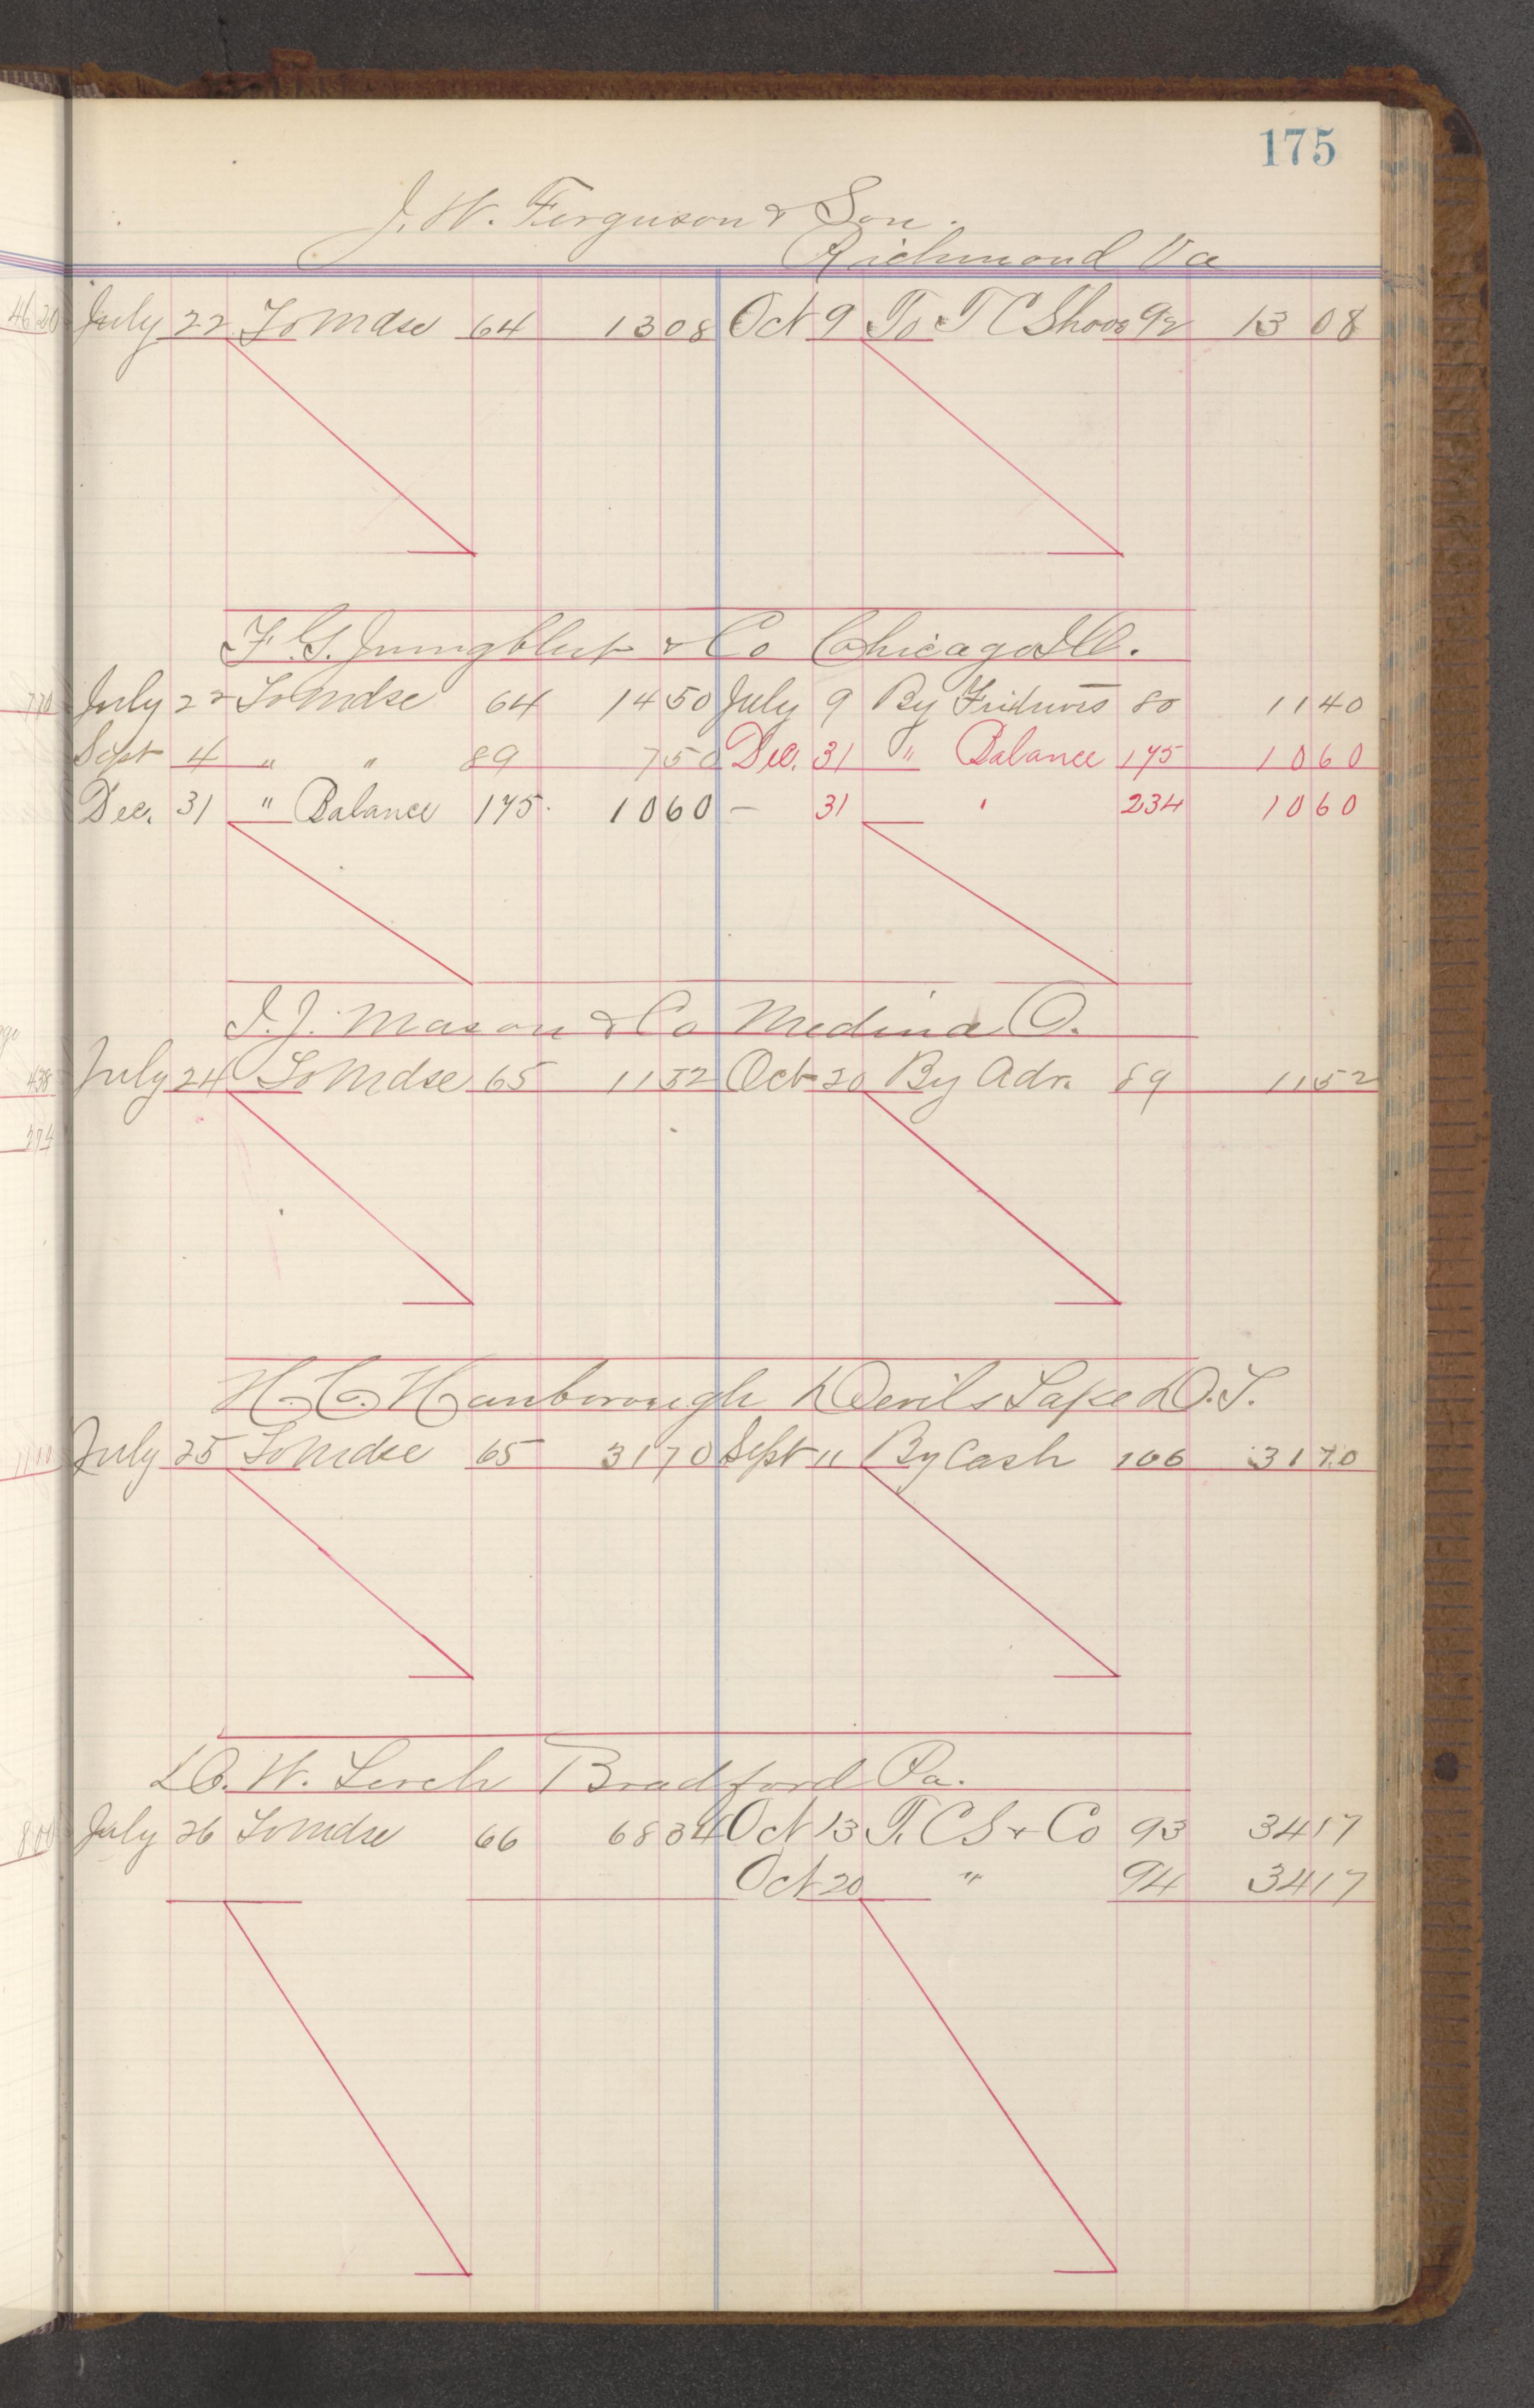 175
J. W. Ferguson & Son.
Richmond Va
July 22 To Mdse 64 13 08 Oct 9 To T C Shoos 92 13 08
F. G. Jungblut & Co Chicago Ill.
July 22 To Mdse 64 14 50 July 9 By Fixtures 80 11 40
Sept 4 " " 89 7 50 Dec. 31 " Balance 175 10 60
Dec. 31 " Balance 175. 10 60 — 31 " 234 10 60
I. J. Mason & Co Medina O.
July 24 To Mdse 65 11 52 Oct 20 By Adv. 89 11 52
H. C. Hanborough Devils Lake D. T.
July 25 To Mdse 65 31 70 Sept 11 By Cash 106 31 70
D. W. Lerch Bradford Pa.
July 26 To Mdse 66 68 34 Oct 13 T. C S & Co 93 34 17
Oct 20 " 94 34 17